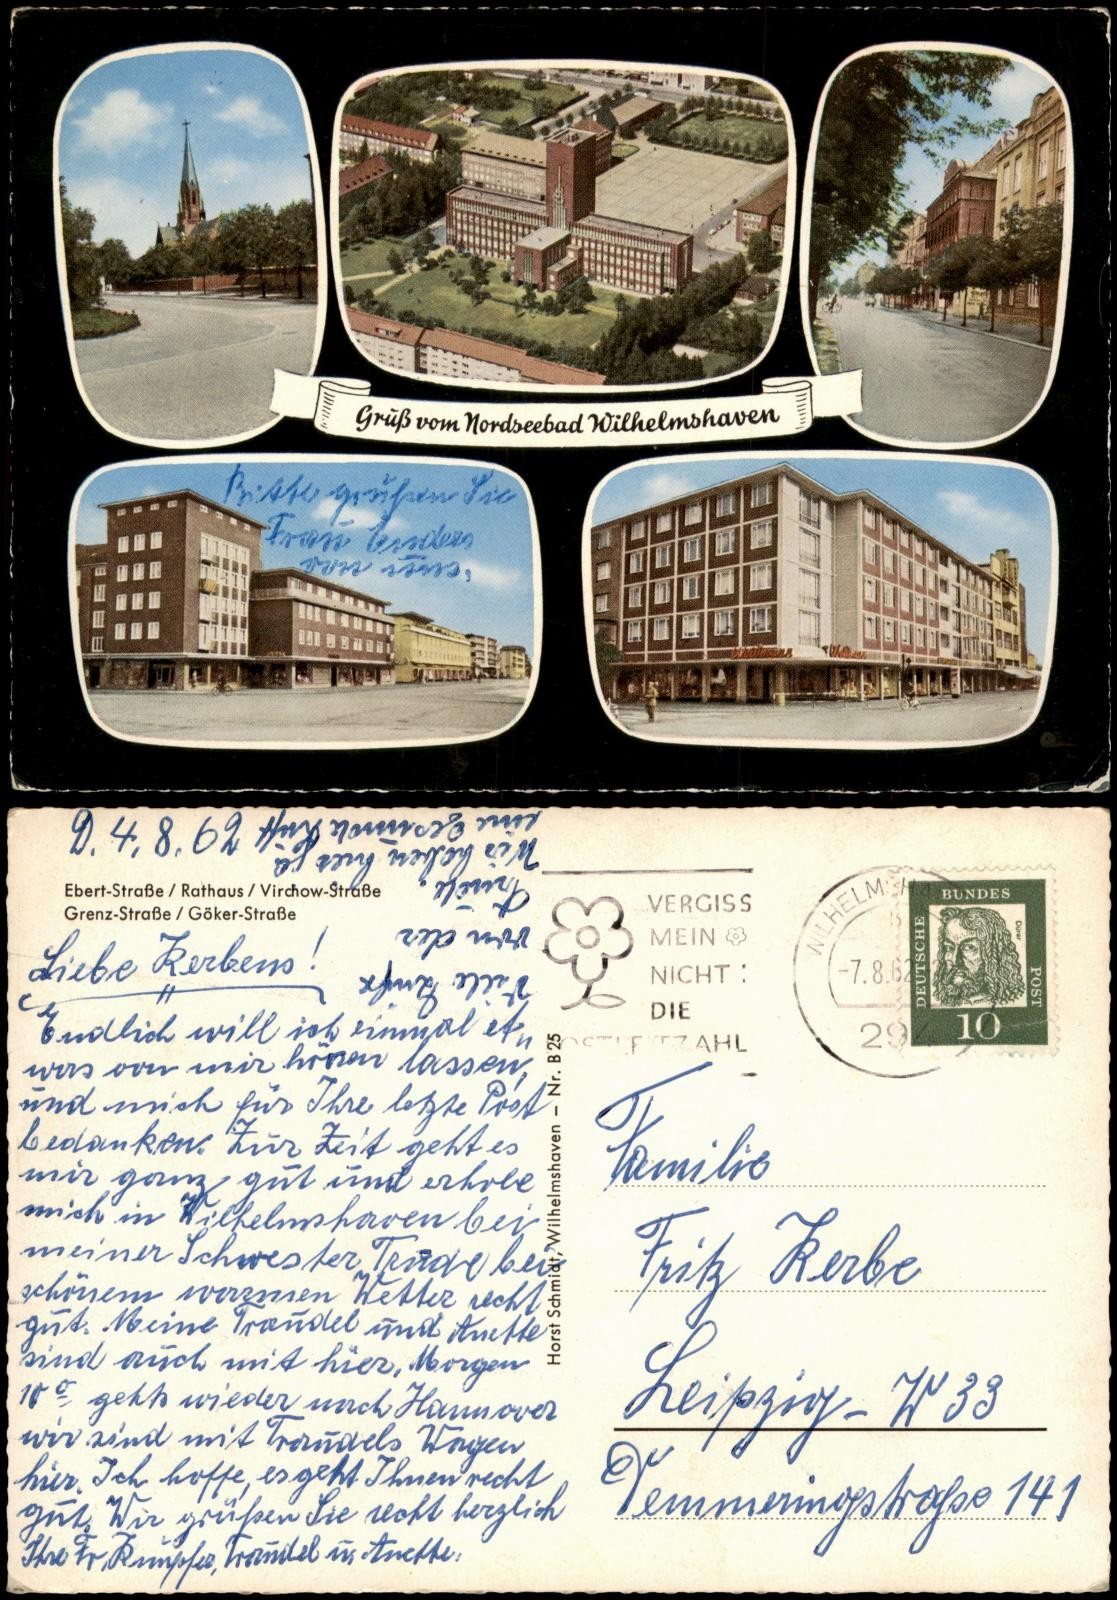 Gruß vom Nordseebad Wilhelmshaven
Bitte grüßen Sie
Frau Enders
von uns.
D. 4.8.62
Wir haben hier ja
eine gesunde Luft
Viele Grüße
von der
Trude.
Ebert-Straße / Rathaus / Virchow-Straße
Grenz-Straße / Göker-Straße
Liebe Kerbens!
Endlich will ich einmal et„
was von mir hören lassen,
und mich für Ihre letzte Post
bedanken. Zur Zeit geht es
mir ganz gut und erhole
mich in Wilhelmshaven bei
meiner Schwester Trude bei
schönem warmen Wetter recht
gut. Meine Traudel und Anette
sind auch mit hier. Morgen
10° gehts wieder nach Hannover
wir sind mit Traudels Wagen
hier. Ich hoffe, es geht Ihnen recht
gut. Wir grüßen Sie recht herzlich
Ihre Fr. Kümpfer, Traudel u. Anette.
Horst Schmidt, Wilhelmshaven – Nr. B 25
VERGISS
MEIN
NICHT:
DIE
POSTLEITZAHL
WILHELMSHA
-7.8.62
294
DEUTSCHE
BUNDES
POST
Dürer
10
Familie
Fritz Kerbe
Leipzig - W 33
Demmeringstraße 141